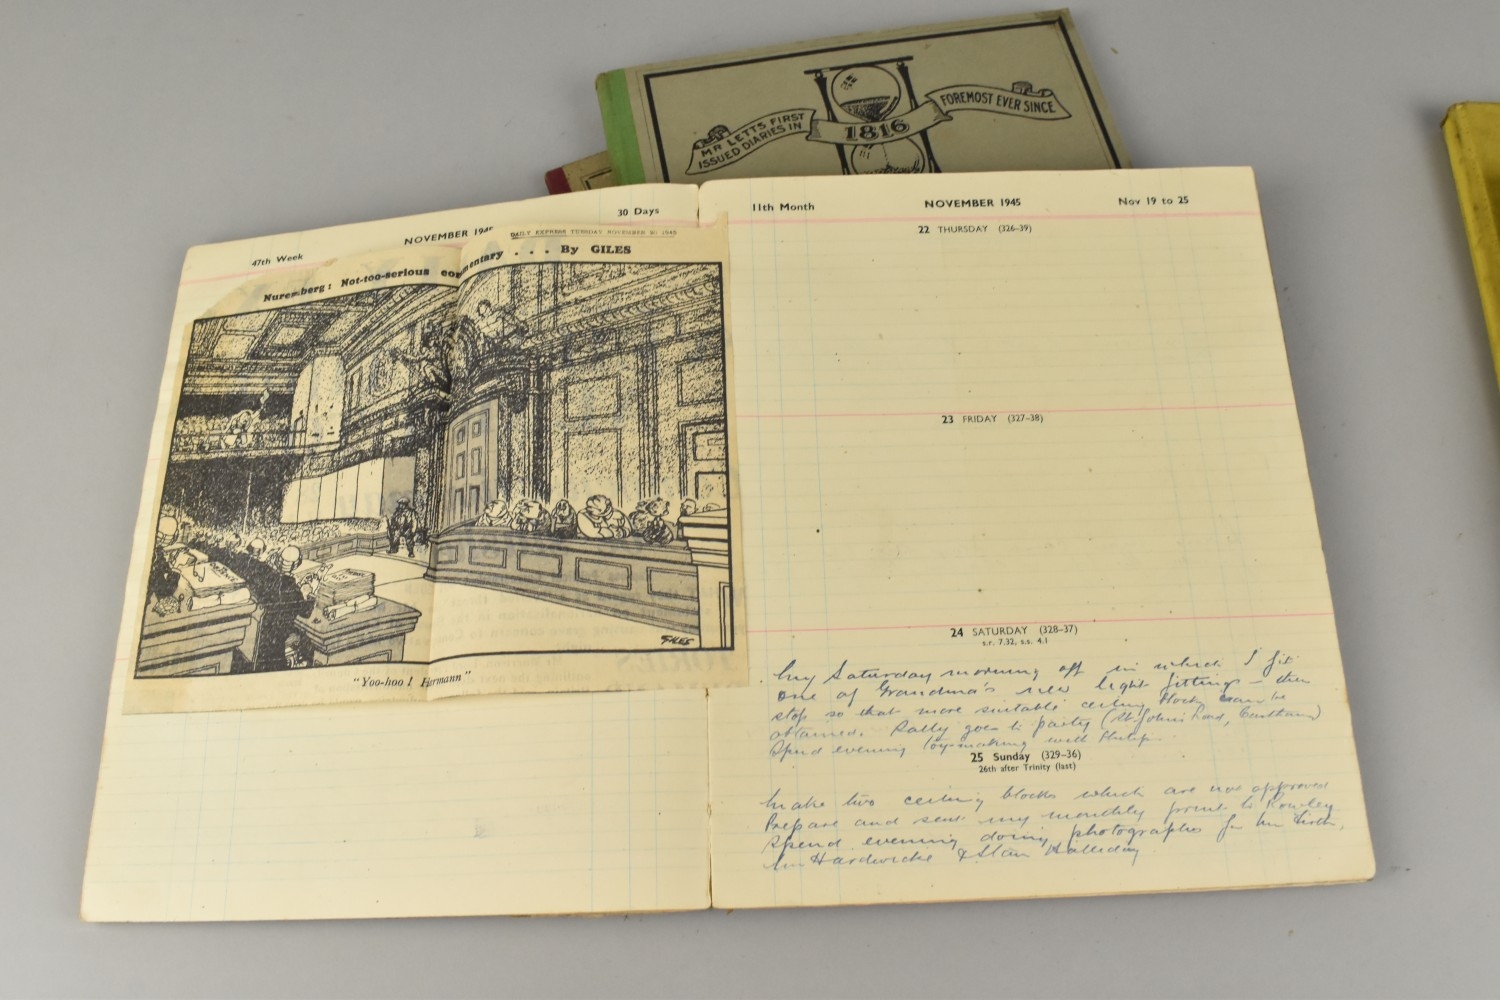 MR LETTS FIRST
ISSUED DIARIES IN
1816
FOREMOST EVER SINCE
47th Week
NOVEMBER 1945
30 Days
DAILY EXPRESS TUESDAY NOVEMBER 20 1945
Nuremberg: Not-too-serious commentary . . . By GILES
GILES
"Yoo-hoo! Hermann"
11th Month
NOVEMBER 1945
Nov 19 to 25
22 THURSDAY (326-39)
23 FRIDAY (327-38)
24 SATURDAY (328-37)
s.r. 7.32, s.s. 4.1
My Saturday morning off in which I fit
one of Grandma's new light fittings - then
stop so that more suitable ceiling blocks can be
obtained. Sally goes to party (St. Johns Road,
Spend evening toy-making with Philip
25 Sunday (329-36)
26th after Trinity (last)
Make two ceiling blocks which are now approved
Prepare and send my monthly print to Rowley
Spend evening doing photographs for
Hardwicke & Stan Halliday